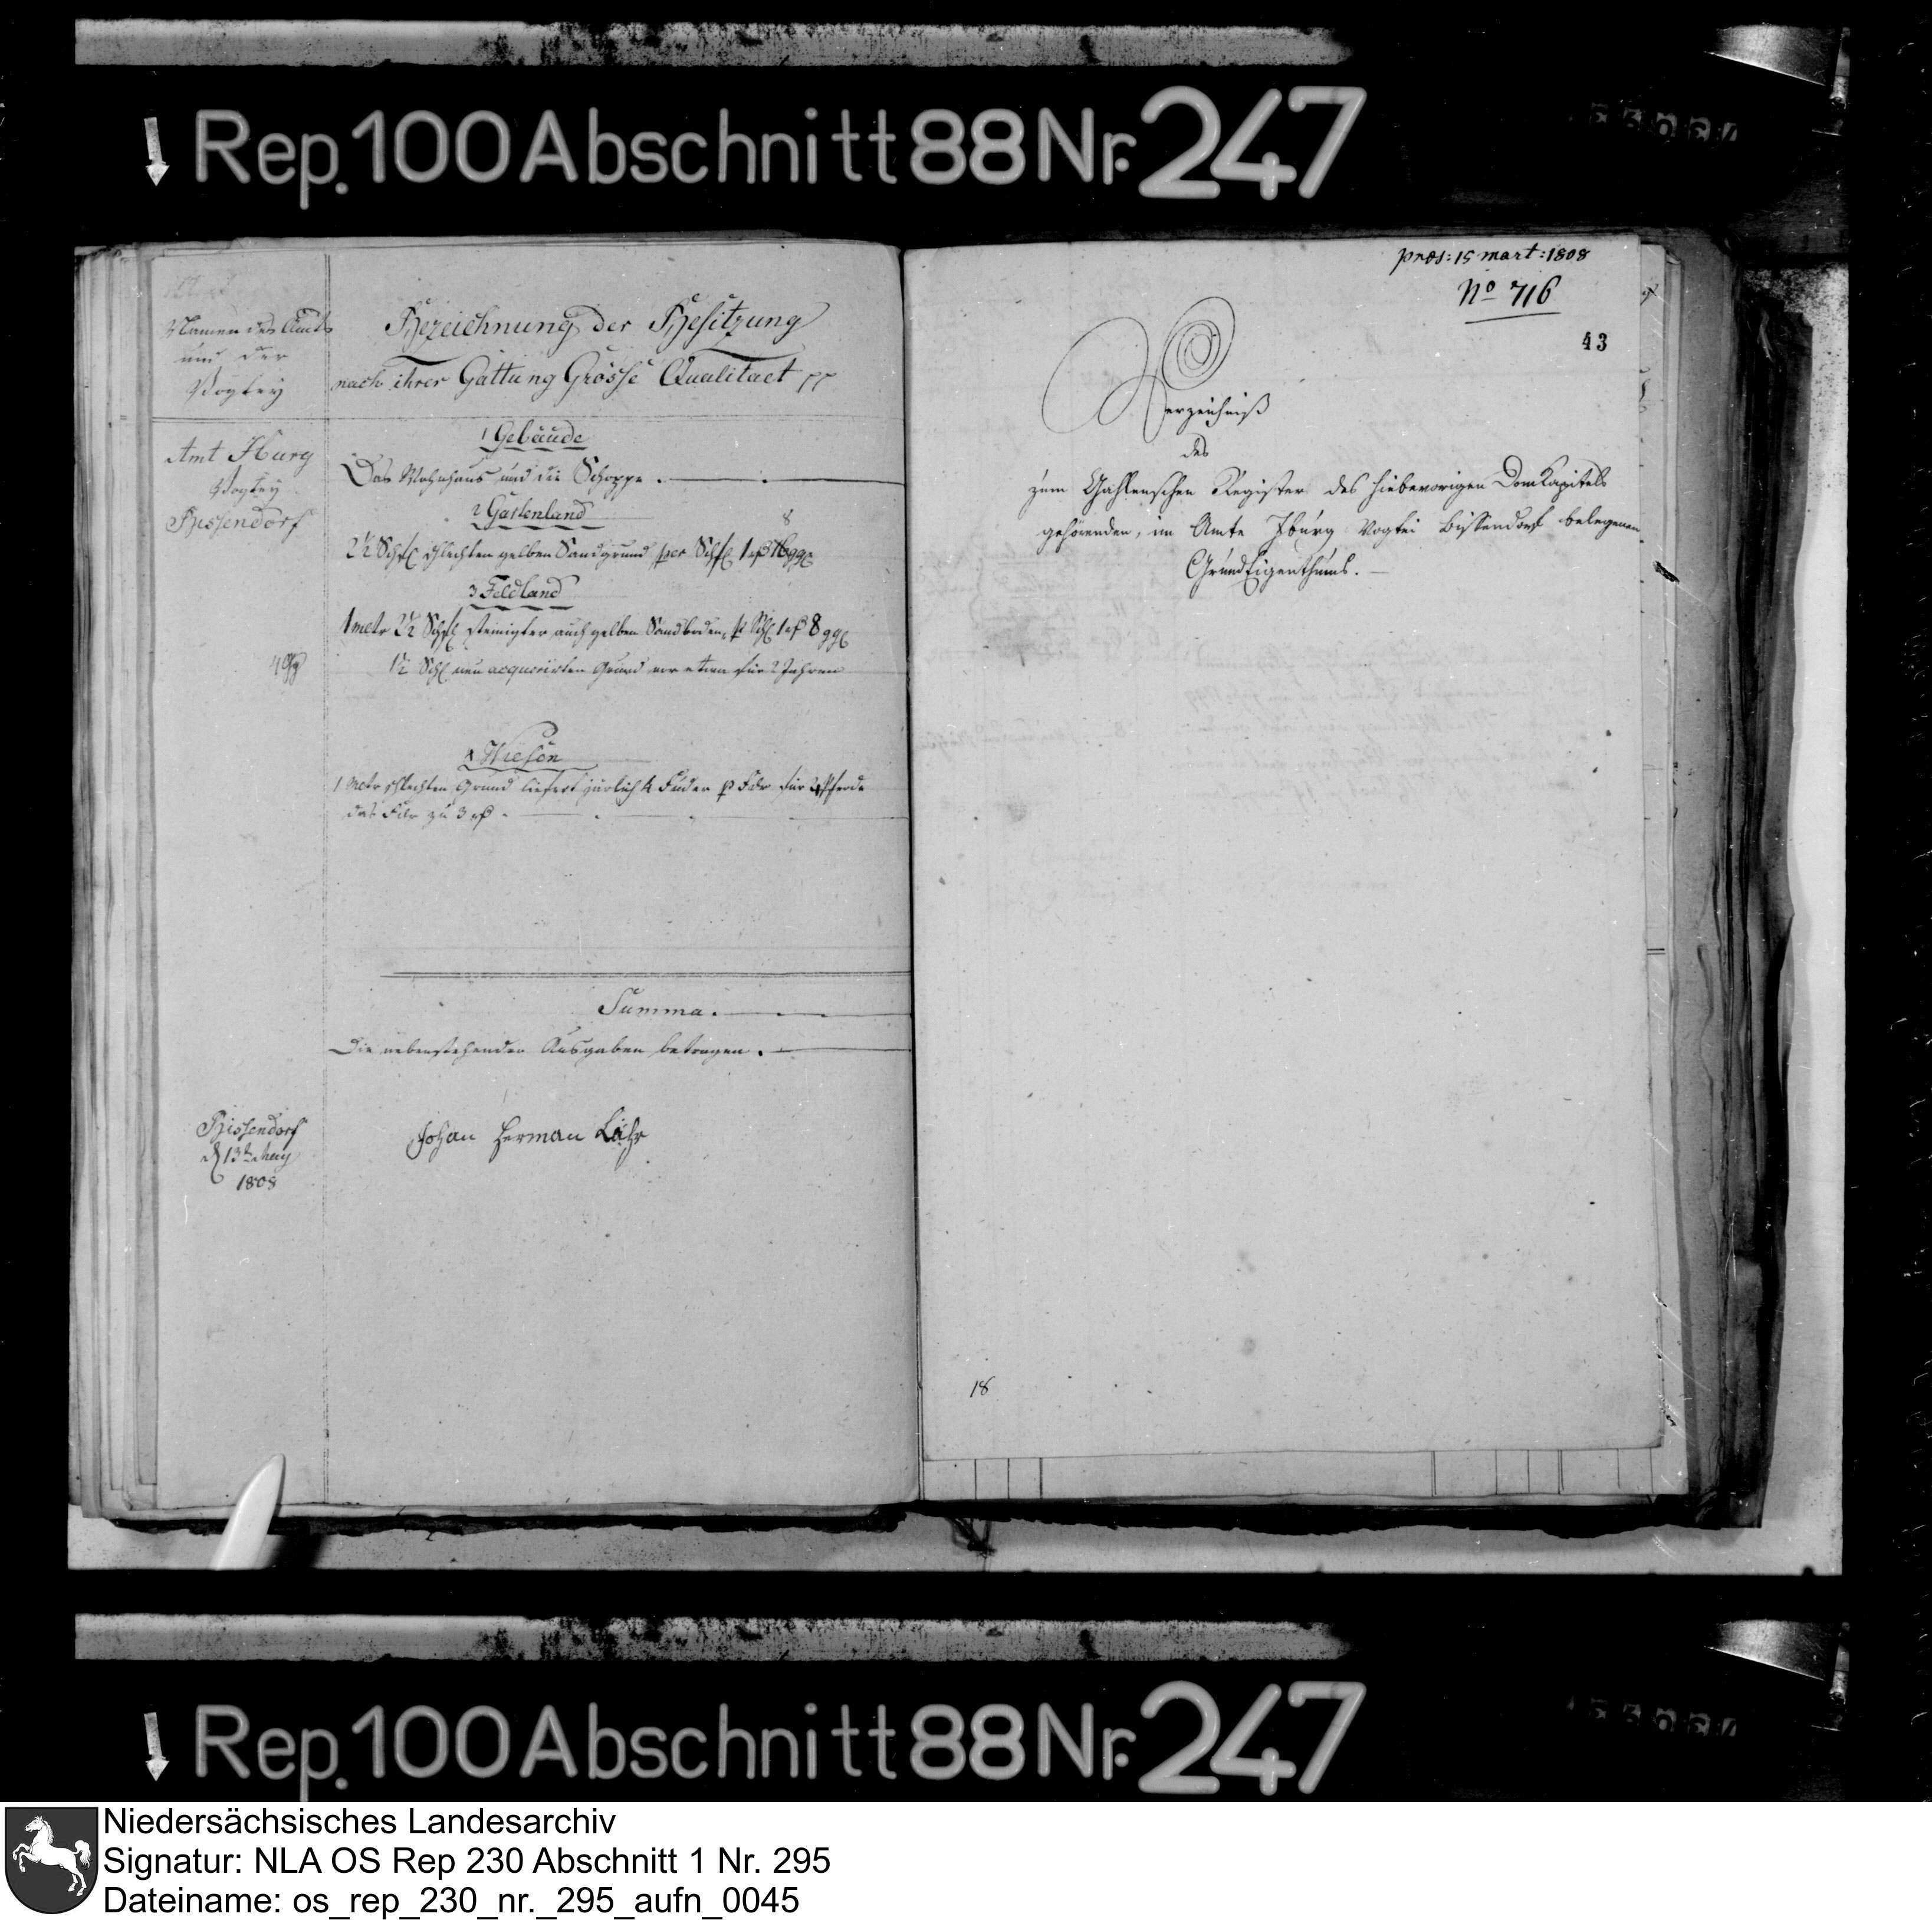 Rep. 100 Abschnitt 88 Nr. 247
Namen des Amts
und der
Vogtey
Bezeichnung der Besitzung
nach ihrer Gattung Grösse Qualitaet pp
Amt Iburg
Vogtey
Bissendorf
1 Gebäude
Das Wohnhaus und die Schoppe.
2 Gartenland
8
2½ Schfl schlechten gelben Sandgrund per Schfl 1
3 Feldland
1 metr 2½ Schfl steinigter auch gelben Sandboden, 8 ggl
1½ Schl neu acquorirten Grund vor etwa für 2 Jahren
4 Wiesen
1 metr schlechten Grund liefert järlich 4 Fuder p Fdr für 2 Pferde
das Fdr zu 3
Summa.
Die nebenstehenden Ausgaben betragen.
Bissendorf
1808
Johan Herman Lühr
præs: 15 mart: 1808
No 716
43
Verzeichniß
des
zum Register des hiebevorigen DomKapitels
gehörenden, im Amte Iburg Vogtei Bissendorf belegenen
GrundEigenthums.
18
Rep. 100 Abschnitt 88 Nr. 247
Niedersächsisches Landesarchiv
Signatur: NLA OS Rep 230 Abschnitt 1 Nr. 295
Dateiname: os_rep_230_nr._295_aufn_0045